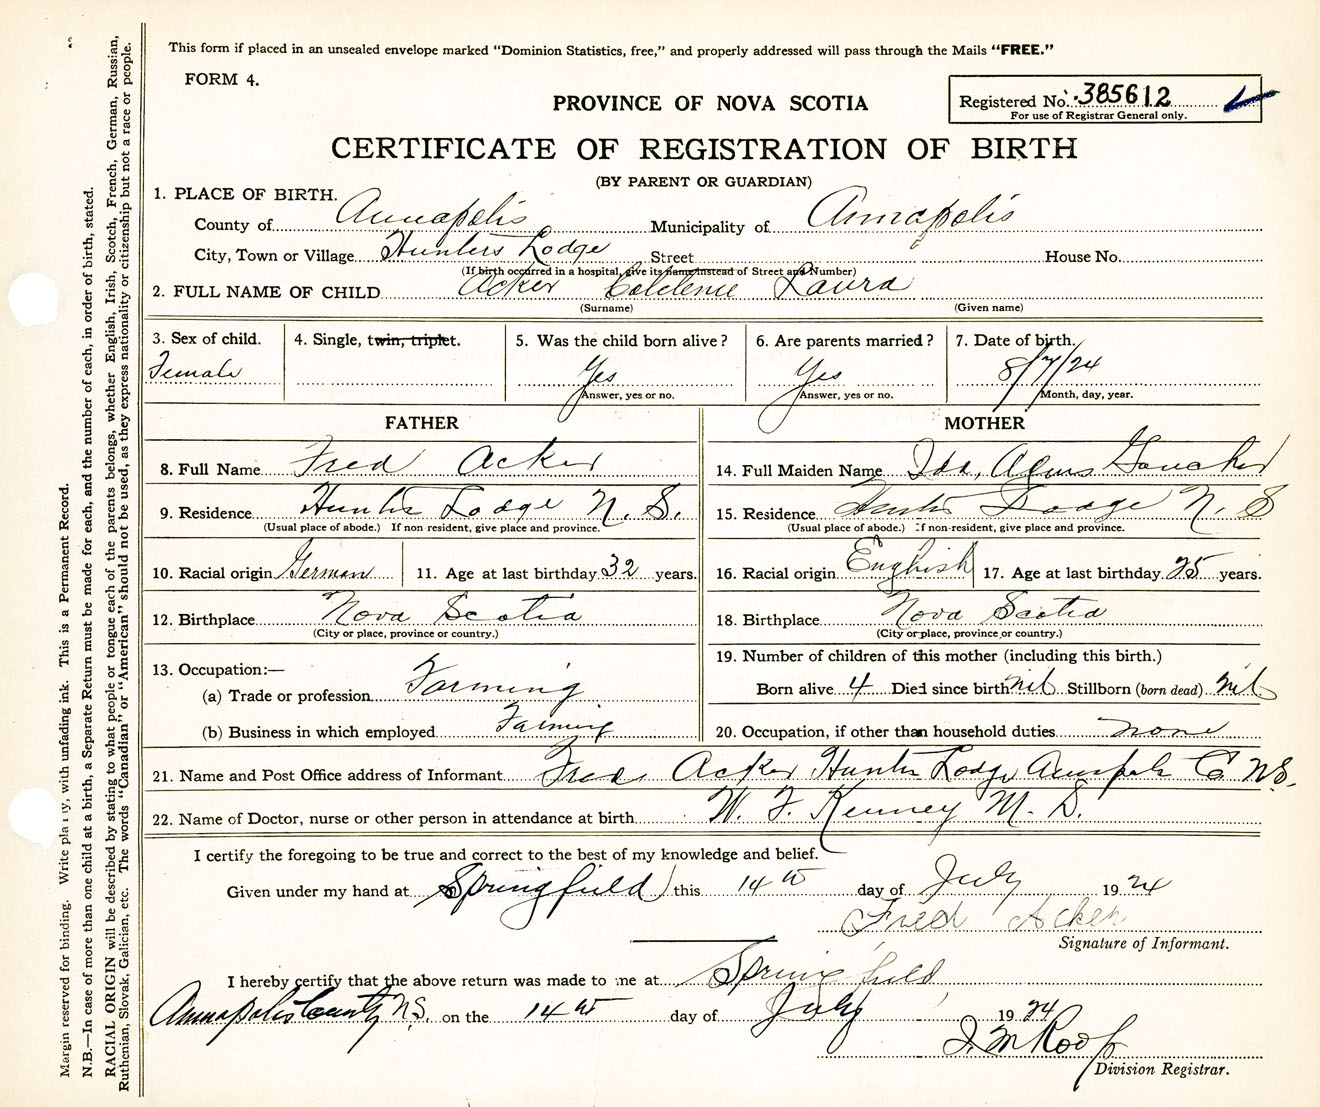 This form if placed in an unsealed envelope marked “Dominion Statistics, free,” and properly addressed will pass through the Mails “FREE.”
FORM 4.
PROVINCE OF NOVA SCOTIA
Registered No. 385612
For use of Registrar General only.
CERTIFICATE OF REGISTRATION OF BIRTH
(BY PARENT OR GUARDIAN)
1. PLACE OF BIRTH.
County of Annapolis Municipality of Annapolis
City, Town or Village Hunters Lodge Street House No.
(If birth occurred in a hospital, give its name instead of Street and Number)
2. FULL NAME OF CHILD Acker Laura
(Surname) (Given name)
3. Sex of child. 4. Single, twin, triplet. 5. Was the child born alive? 6. Are parents married? 7. Date of birth.
Female Yes Yes 8/7/24
Answer, yes or no. Answer, yes or no. Month, day, year.
FATHER MOTHER
8. Full Name Fred Acker 14. Full Maiden Name Ida, Goucher
9. Residence Hunters Lodge N. S. 15. Residence Hunters Lodge N. S
(Usual place of abode.) If non resident, give place and province. (Usual place of abode.) If non-resident, give place and province.
10. Racial origin German 11. Age at last birthday 32 years. 16. Racial origin English 17. Age at last birthday 25 years.
12. Birthplace Nova Scotia 18. Birthplace Nova Scotia
(City or place, province or country.) (City or place, province or country.)
13. Occupation:— 19. Number of children of this mother (including this birth.)
(a) Trade or profession Farming Born alive 4 Died since birth nil Stillborn (born dead) nil
(b) Business in which employed Farming 20. Occupation, if other than household duties none
21. Name and Post Office address of Informant Fred Acker Hunters Lodge Annapolis Co N.S.
22. Name of Doctor, nurse or other person in attendance at birth W. F. Kenney M. D.
I certify the foregoing to be true and correct to the best of my knowledge and belief.
Given under my hand at Springfield this 14th day of July 1924
Fred Acker
Signature of Informant.
I hereby certify that the above return was made to me at Springfield
Annapolis County N.S. on the 14th day of July 1924
J. M Roop
Division Registrar.
Margin reserved for binding. Write plainly, with unfading ink. This is a Permanent Record.
N.B.—In case of more than one child at a birth, a Separate Return must be made for each, and the number of each, in order of birth, stated.
RACIAL ORIGIN will be described by stating to what people or tongue each of the parents belongs, whether English, Irish, Scotch, French, German, Russian,
Ruthenian, Slovak, Galician, etc. The words “Canadian” or “American” should not be used, as they express nationality or citizenship but not a race or people.